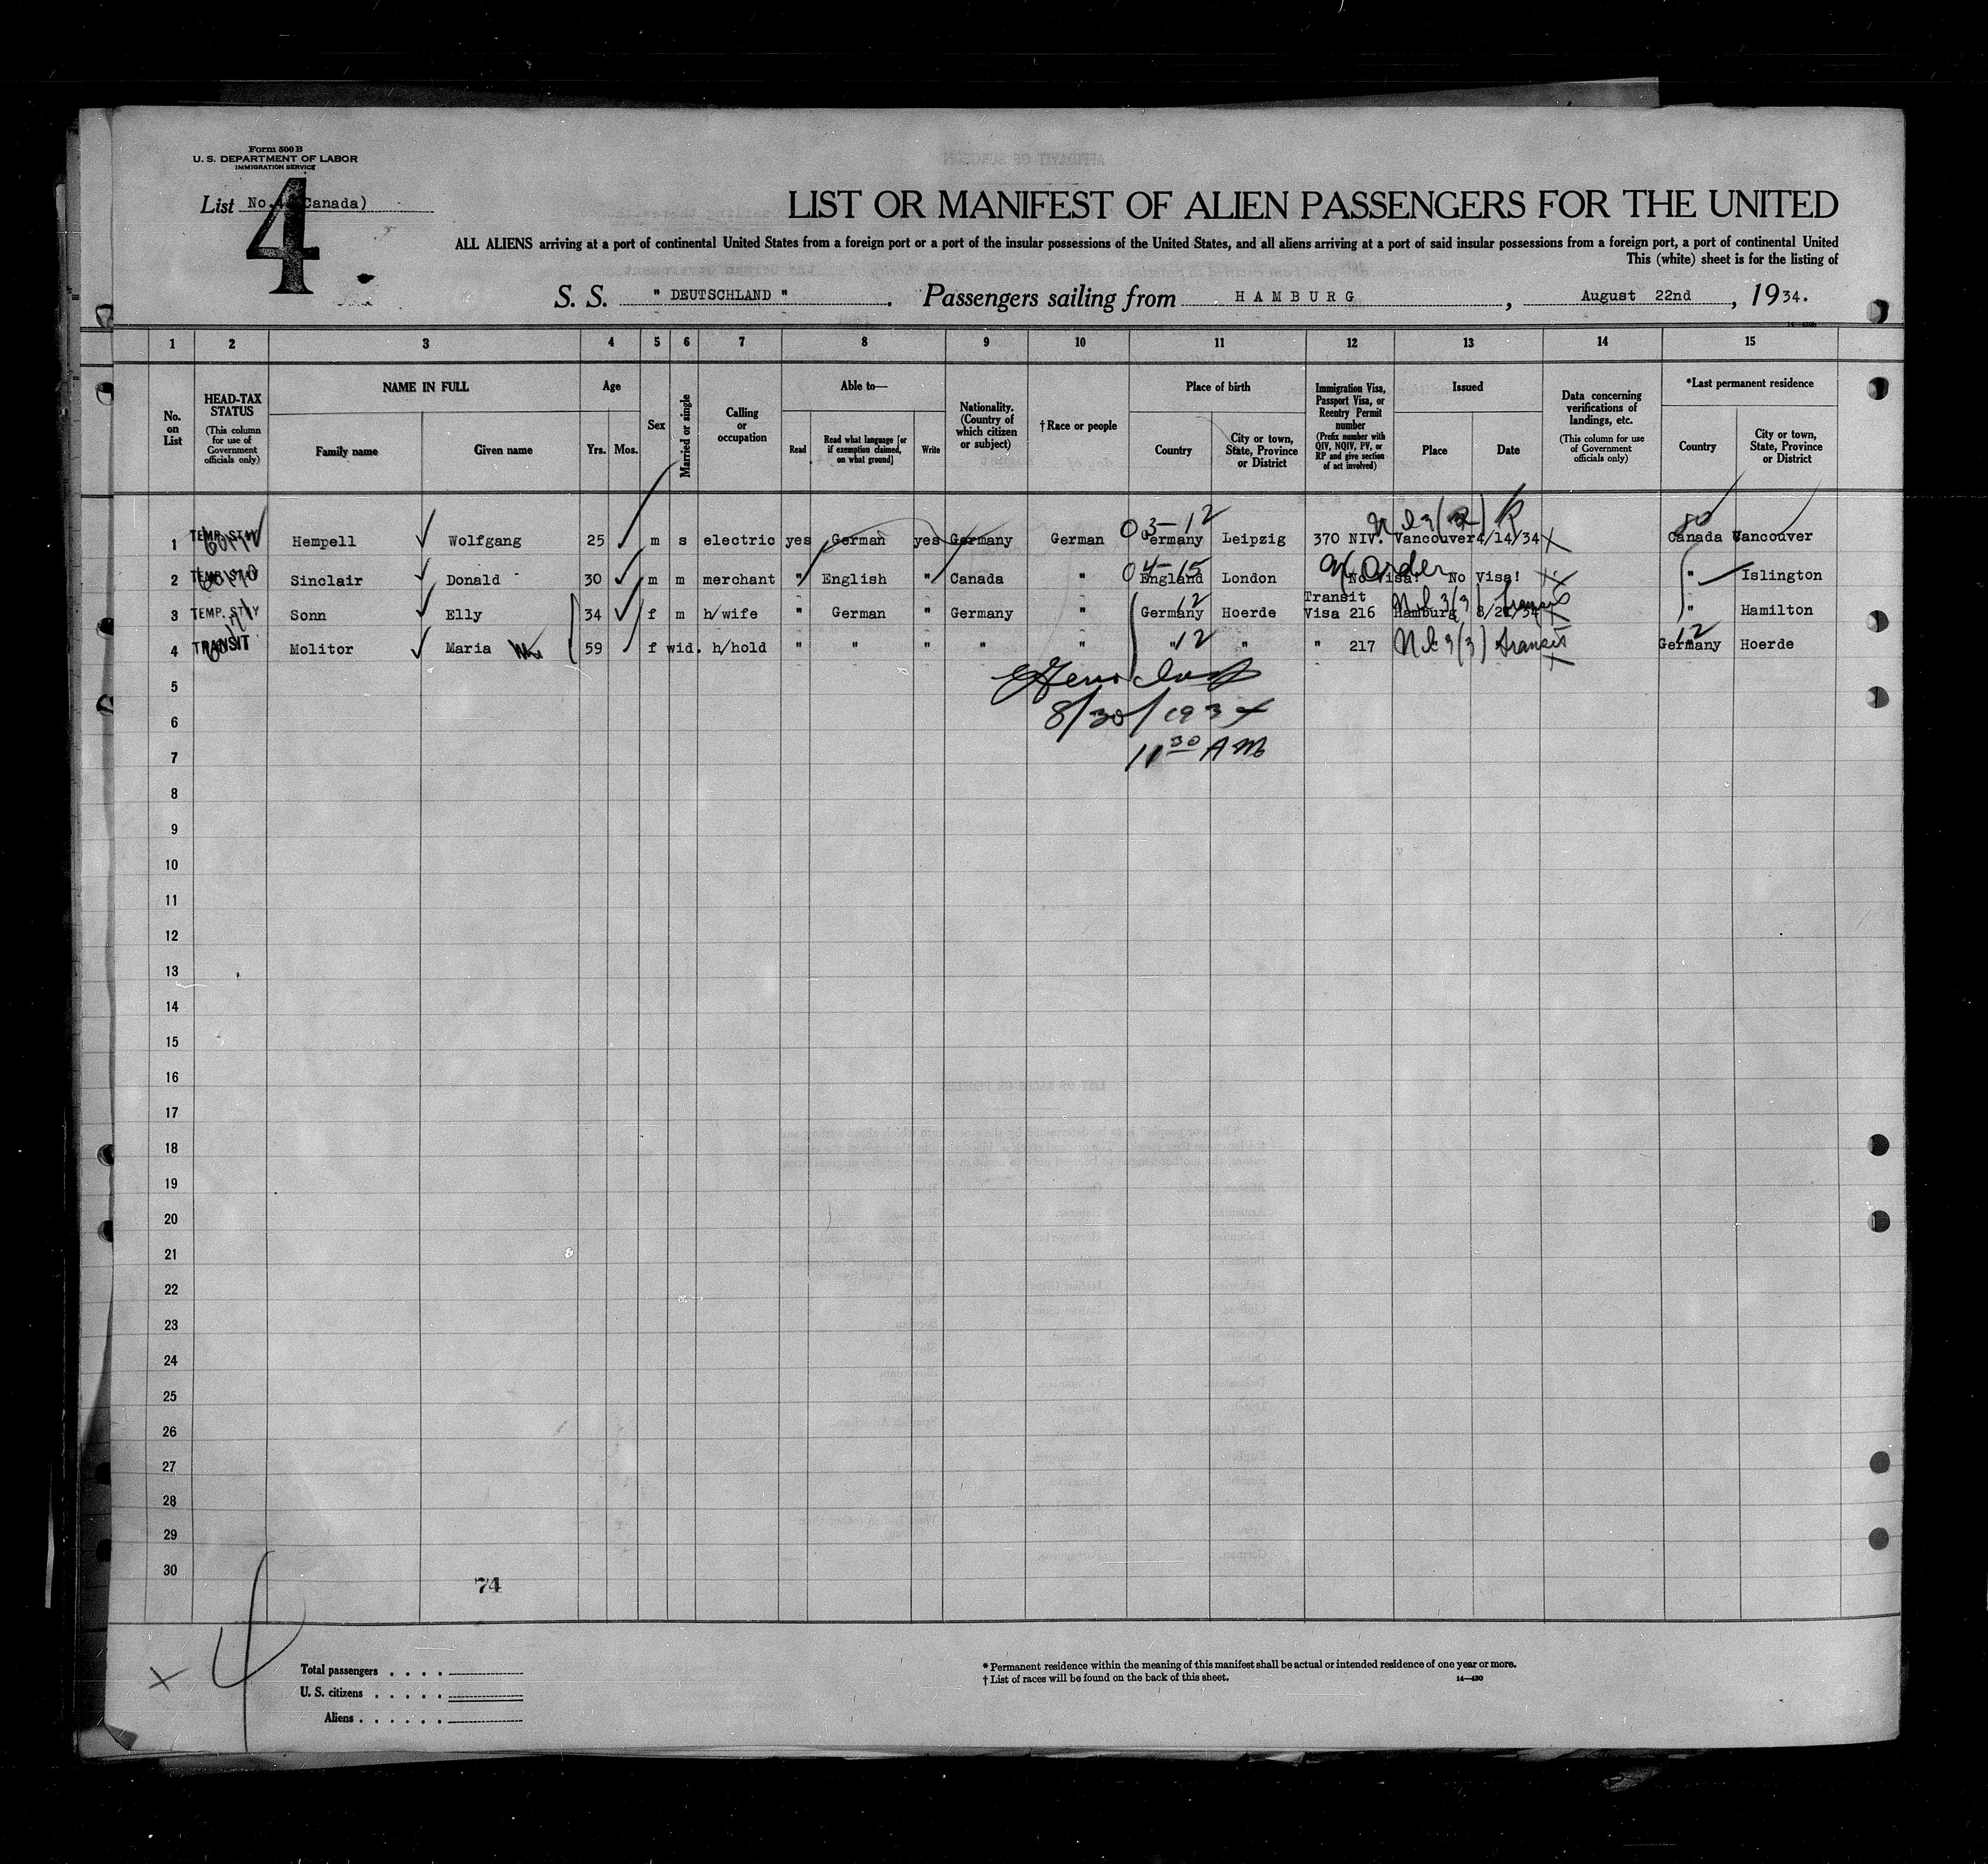 Form 500 B
U. S. DEPARTMENT OF LABOR
IMMIGRATION SERVICE
List No. 4 (Canada)
4
LIST OR MANIFEST OF ALIEN PASSENGERS FOR THE UNITED
ALL ALIENS arriving at a port of continental United States from a foreign port or a port of the insular possessions of the United States, and all aliens arriving at a port of said insular possessions from a foreign port, a port of continental United
This (white) sheet is for the listing of
S. S. " DEUTSCHLAND ". Passengers sailing from HAMBURG, August 22nd, 1934.
1 2 3 4 5 6 7 8 9 10 11 12 13 14 15
No. on List
HEAD-TAX STATUS (This column for use of Government officials only)
NAME IN FULL
Family name
Given name
Age
Yrs. Mos.
Sex
Married or single
Calling or occupation
Able to—
Read
Read what language [or if exemption claimed, on what ground]
Write
Nationality. (Country of which citizen or subject)
† Race or people
Place of birth
Country
City or town, State, Province or District
Immigration Visa, Passport Visa, or Reentry Permit number (Prefix number with QIV, NQIV, PV, or RP and give section of act involved)
Issued
Place
Date
Data concerning verifications of landings, etc. (This column for use of Government officials only)
*Last permanent residence
Country
City or town, State, Province or District
03-12
80
1 TEMP. STAY Hempell Wolfgang 25 m s electric yes German yes Germany German Germany Leipzig 370 NIV. Vancouver 4/14/34 Canada Vancouver
04-15 Order
2 TEMP. STAY Sinclair Donald 30 m m merchant " English " Canada " England London No Visa! No Visa! " Islington
12 Transit
3 TEMP. STAY Sonn Elly 34 f m h/wife " German " Germany " Germany Hoerde Visa 216 Hamburg 8/21/34 transit " Hamilton
12 12
4 TRANSIT Molitor Maria 59 f wid. h/hold " " " " " " " " 217 transit Germany Hoerde
5
8/30/1934
6
11 30 AM
7
8
9
10
11
12
13
14
15
16
17
18
19
20
21
22
23
24
25
26
27
28
29
30
74
4
Total passengers . . . .
U. S. citizens . . . . .
Aliens . . . . . .
* Permanent residence within the meaning of this manifest shall be actual or intended residence of one year or more.
† List of races will be found on the back of this sheet.
14—430